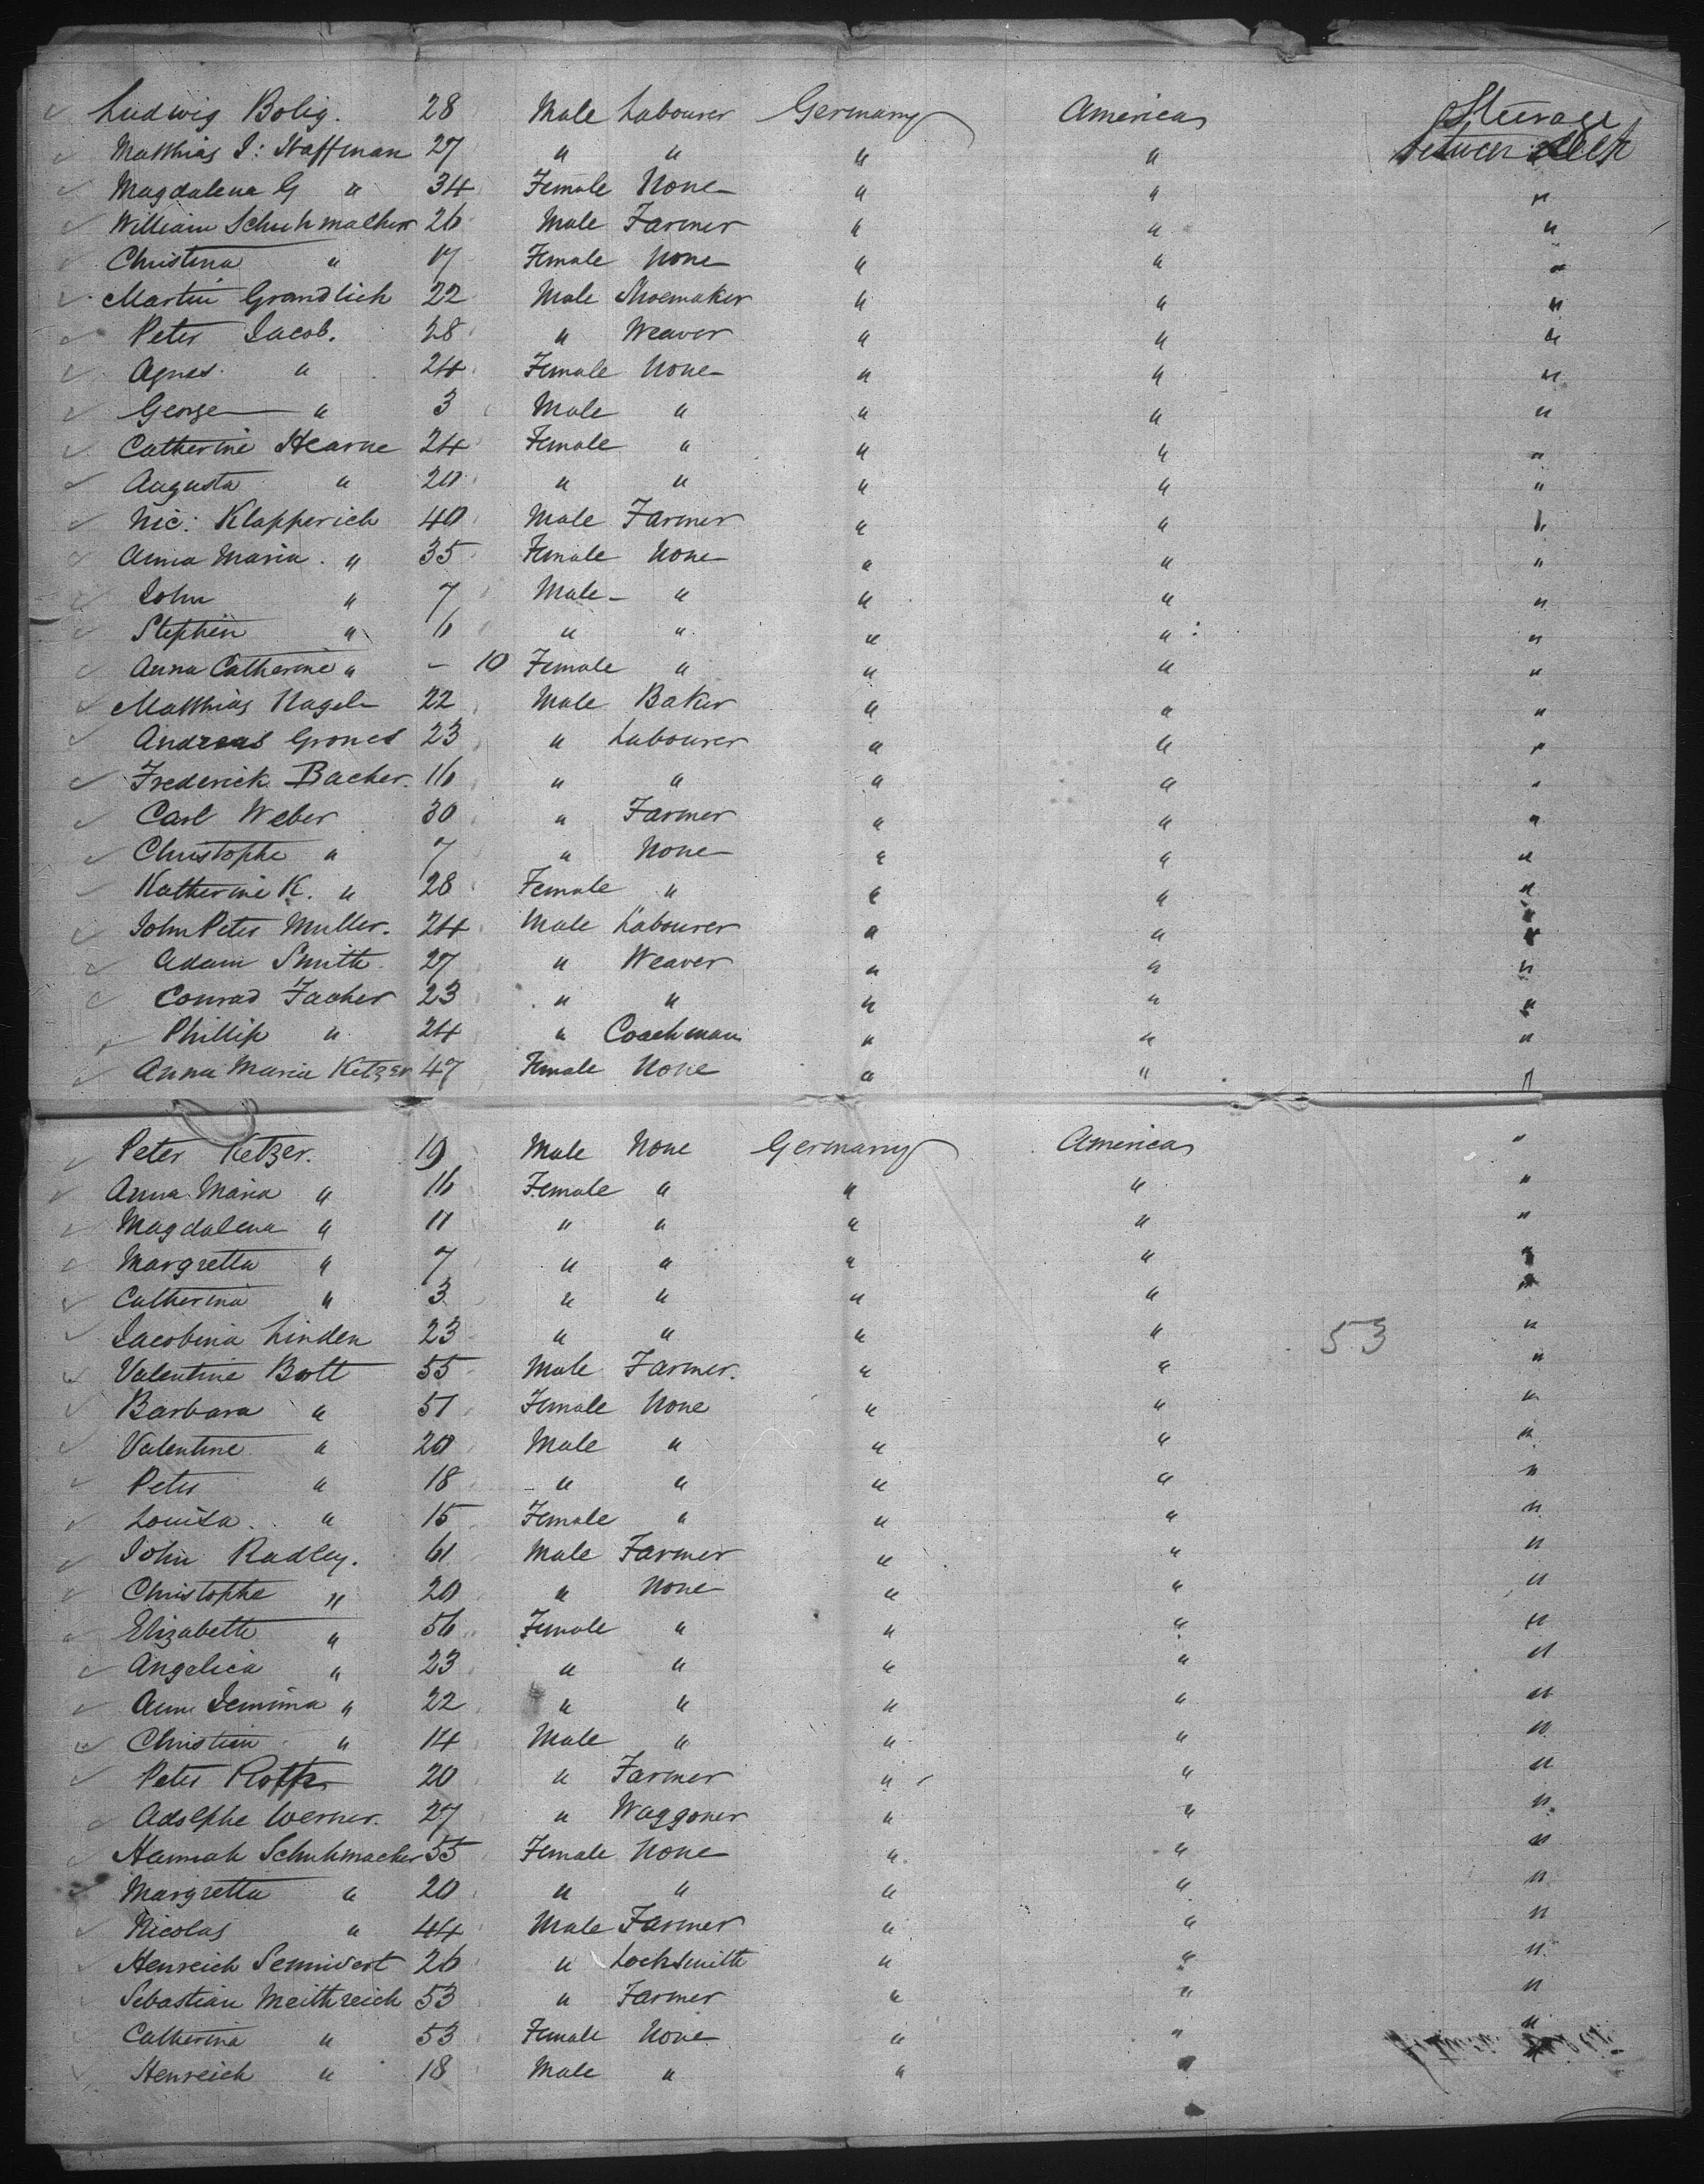 Ludwig Bolig. 28 Male Labourer Germany America Steerage
Matthias J: Haffman 27 " " " " between deck
Magdalena G " 34 Female None " " "
William Schuhmacher 26 Male Farmer " " "
Christina " 17 Female None " " "
Martin Grandlich 22 Male Shoemaker " " "
Peter Jacob. 28 " Weaver " " "
Agnes " 24 Female None " " "
George " 3 Male " " " "
Catherine Hearne 24 Female " " " "
Augusta " 20 " " " " "
Nic: Klapperich 40 Male Farmer " " "
Anna Maria " 35 Female None " " "
John " 7 Male " " " "
Stephen " 6 " " " " "
Anna Catherine " – 10 Female " " " "
Matthias Nagel 22 Male Baker " " "
Andreas Grones 23 " Labourer " " "
Frederick Bacher. 16 " " " " "
Carl Weber 30 " Farmer " " "
Christophe " 7 " None " " "
Katherine K. " 28 Female " " " "
John Peter Muller. 24 Male Labourer " " "
Adam Smith 27 " Weaver " " "
Conrad Facher 23 " " " " "
Phillip " 24 " Coachman " " "
Anna Maria Ketzer 47 Female None " " "
Peter Ketzer. 19 Male None Germany America "
Anna Maria " 16 Female " " " "
Magdalena " 11 " " " " "
Margretta " 7 " " " " "
Catherina " 3 " " " " "
Jacobina Linden 23 " " " " 53 "
Valentine Bott 55 Male Farmer. " " "
Barbara " 51 Female None " " "
Valentine " 20 Male " " " "
Peter " 18 " " " " "
Louisa " 15 Female " " " "
John Radley. 61 Male Farmer " " "
Christophe " 20 " None " " "
Elizabeth " 56 Female " " " "
Angelica " 23 " " " " "
Ann Jemima " 22 " " " " "
Christian " 14 Male " " " "
Peter Roth 20 " Farmer " " "
Adolphe Werner. 27 " Waggoner " " "
Hannah Schuhmacher 55 Female None " " "
Margretta " 20 " " " " "
Nicolas " 44 Male Farmer " " "
Henreich Sennivert 26 " Locksmith " " "
Sebastian Meithreich 53 " Farmer " " "
Catherina " 53 Female None " " "
Henreich " 18 Male " " "